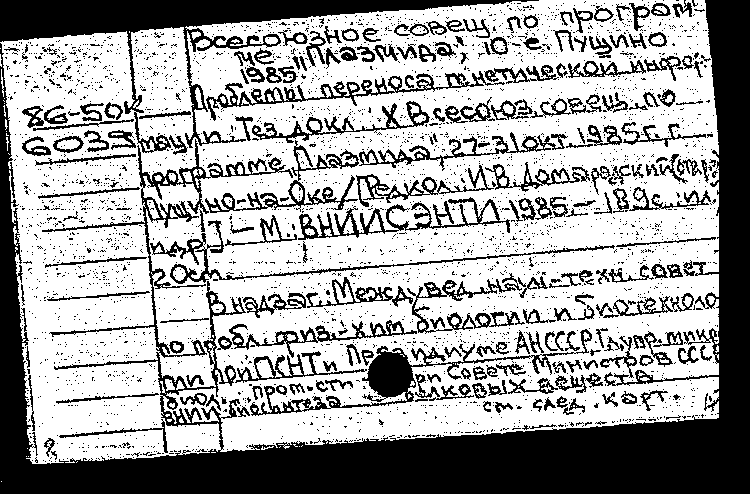 Всесоюзное совещ. по програм-
ме "Плазмида", 10-е. Пущино.
1985
Проблемы переноса генетической инфор-
86-50к
6039
мации: Тез. докл. X Всесоюз. совещ. по
программе "Плазмида", 27-31 окт. 1985 г., г.
Пущино-на-Оке / [Редкол.: И.В. Домарадский (отв. ред.)
и др.]. - М.: ВНИИСЭНТИ, 1985. - 189 с.: ил.
20 см.
В надзаг.: Междувед. науч.-техн. совет
по пробл. физ.-хим. биологии и биотехноло
гии при ГКНТ и Президиуме АН СССР, Гл. упр. микр
биол. пром-сти при Совете Министров СССР
ВНИИ биосинтеза белковых веществ
см. след. карт.